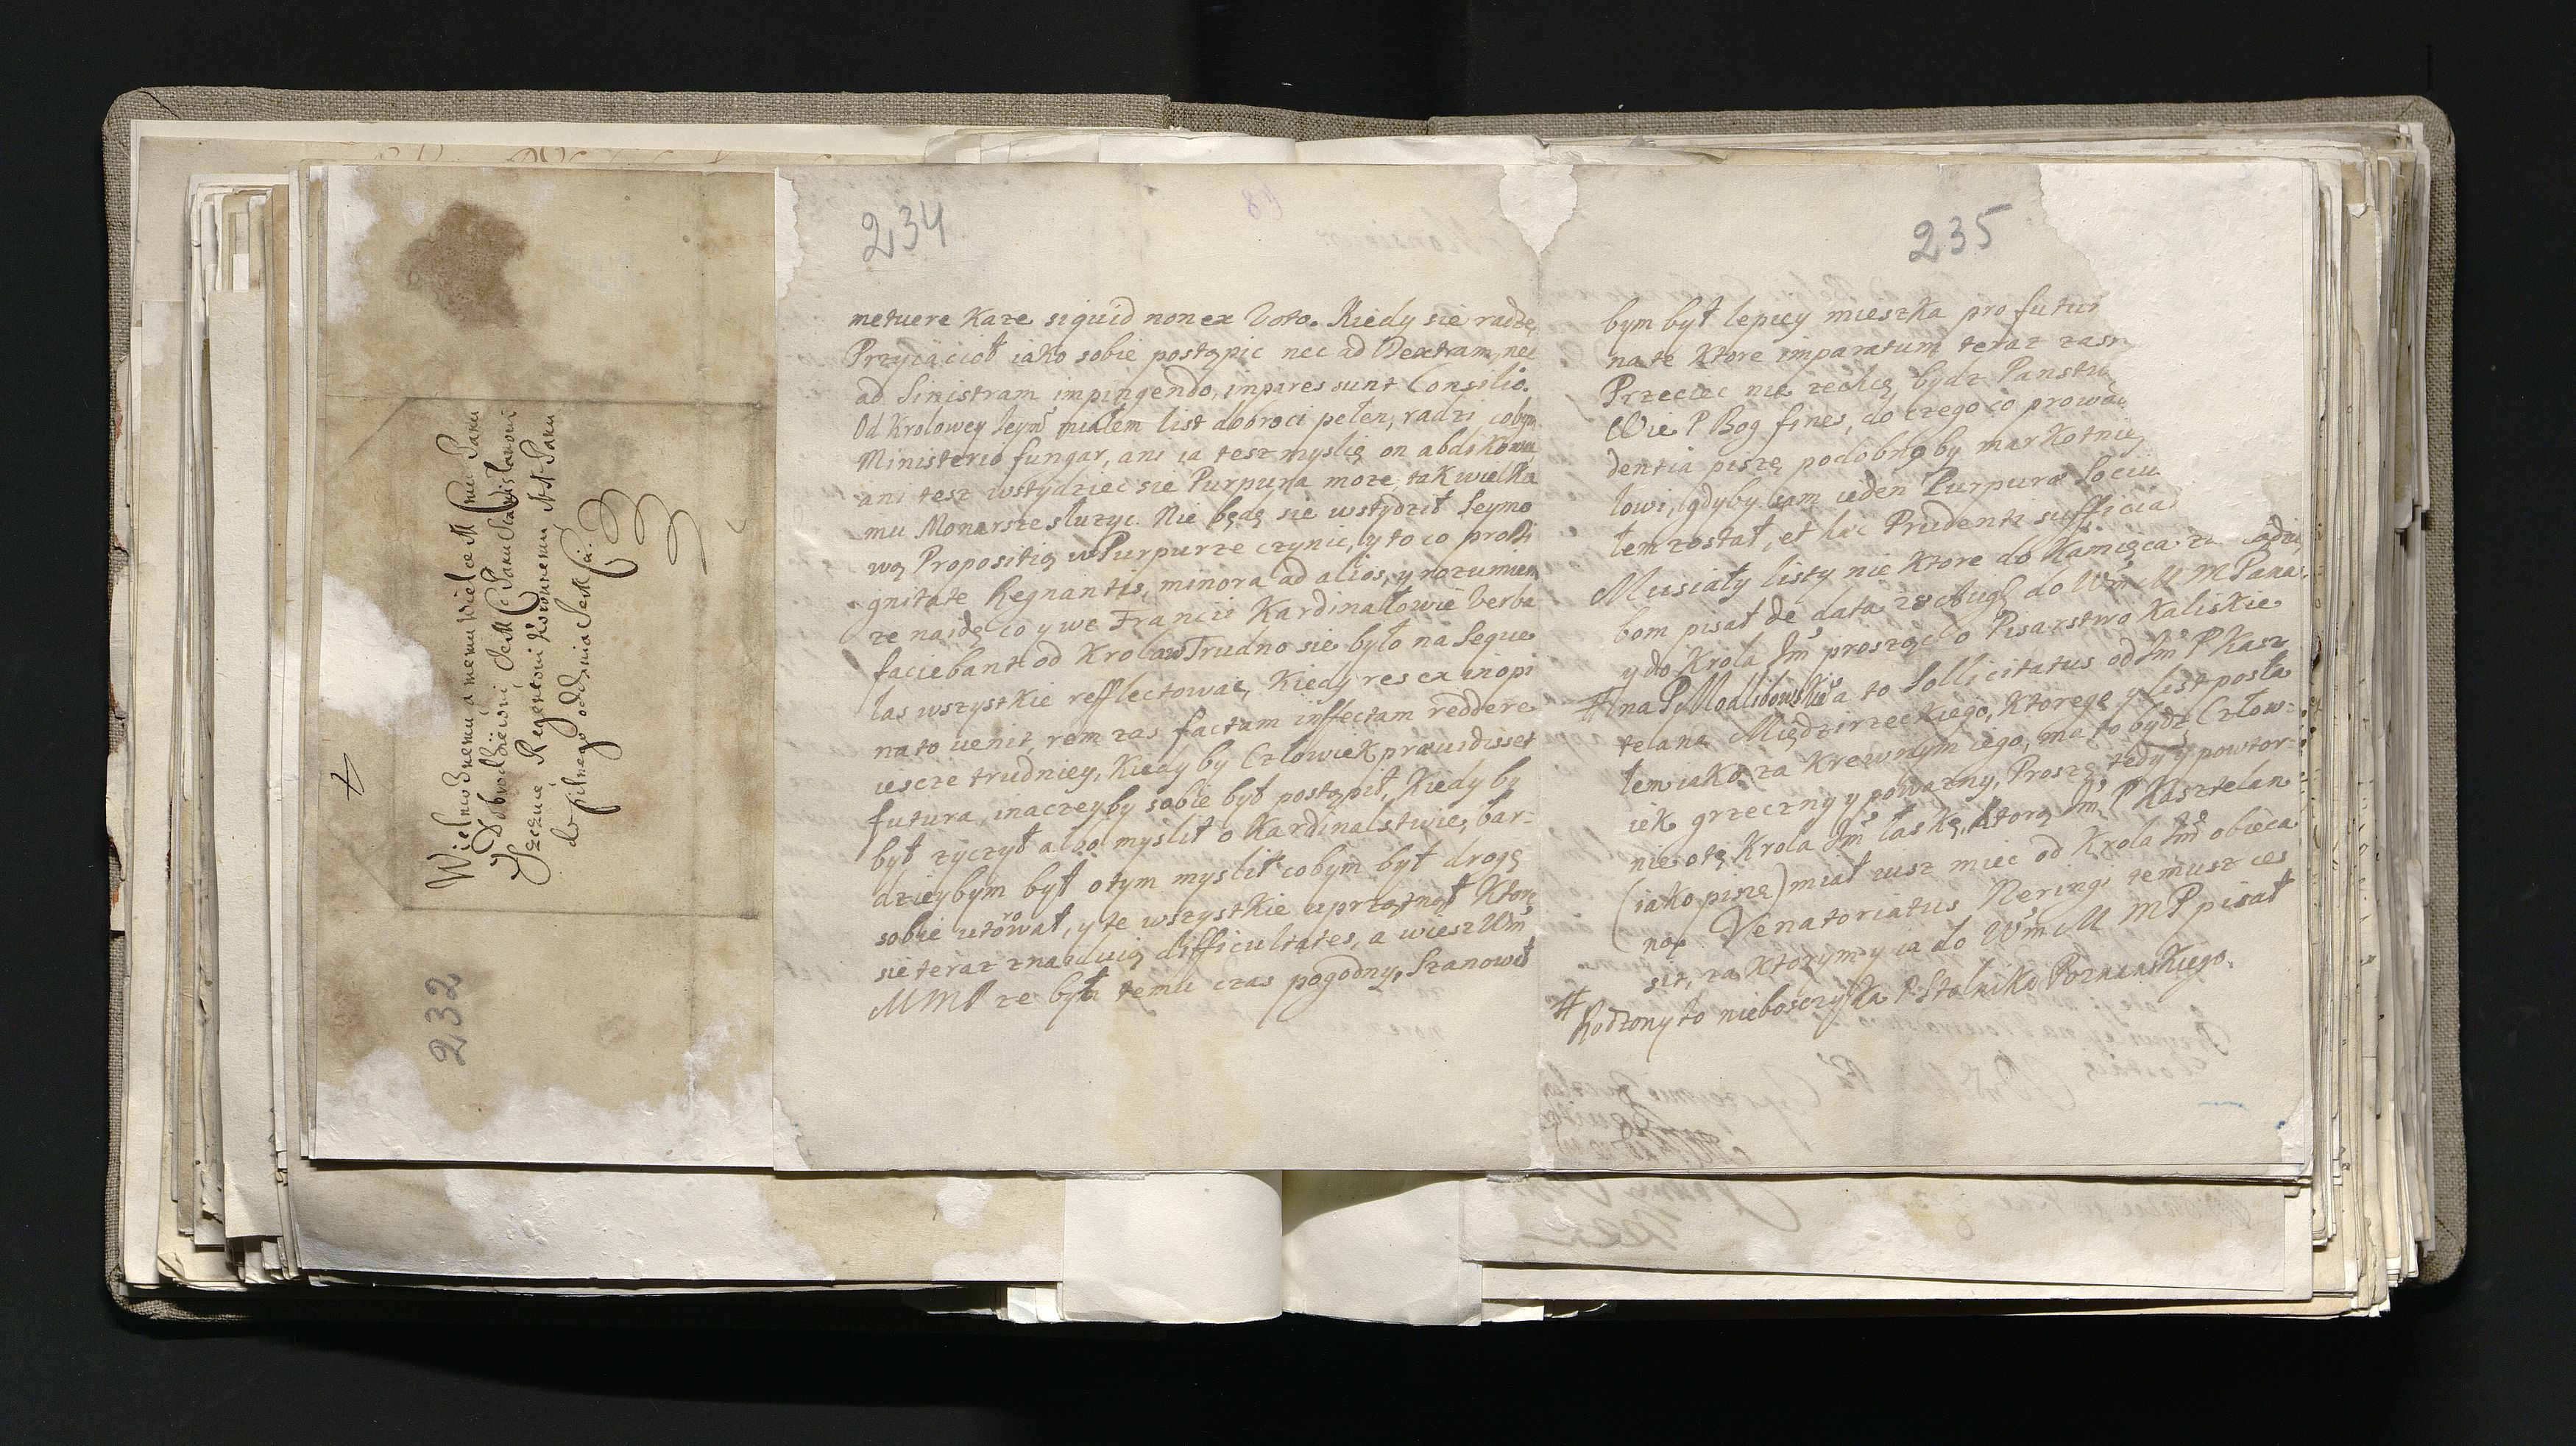 Wielmoznemu a memu Wielce M Pnu Panu
Dobrodzieiowi Je M P Panu Stanislawowi
Szczuce, Regentowi Koronnemu, A A Panu
do pilnego oddania Je M Sci.
232
234
89
metuere Kaze siquid non ex Voto. Kiedy sie radzę
Przyiaciol iako sobie postąpic nec ad Dextram, nec
ad Sinistram impingendo, impares sunt Consilio.
Od Krolowey Jeym miałem list dobroci pełen, radzi cobym
Ministerio fungar, ani ia tesz myslię on abdikowa
ani tesz wstydziec sie Purpura moze, tak wielkie
mu Monarsze sluzyc. Nie będę sie wstydził Seymo
wą Propositią w Purpurze czynic, y to co pro Di
gnitate Regnantis, minora ad alios, y rozumiem
ze naidę co y we Francii Kardinałowie Verba
faciebant od Krolow Trudno sie było na Seque
las wszystkie refflectowac, Kiedy res ex inopi
nato uenit, rem zas factam inffectam reddere
iescze trudniey, Kiedy by Człowiek prauidisset
futura, inaczeyby sobie był postąpił, Kiedy by
był zyczył albo myslił o Kardinalstwie, bar-
dzieybym był o tym myslił cobym był drogę
sobie utorował, y te wszystkie uprzątnął Ktore
sie teraz znaiduią difficultates, a wiesz Wm
M M P ze był temu czas pogodny, Szanowił
235
bym był lepiey mieszka pro futur
na te Ktore imparatum teraz zasz
Przeciec nie zechcą bydz Panstw
Wie P Bog fines, do czego co prowad
dentia piszę podobno by markotnie
łowi, gdyby sam ieden Purpura Sociu
łem został, et hac Prudenti sufficia
Musiały listy nie ktore do Kamięca za
bom pisał de data 28 Augs do Wm M M Pana,
y do Krola Jm prosząc o Pisarstwo Kaliskie
# na P Modlibowskie a to Sollicitatus od Jm P Kasz
telana Międzirzeckiego, Ktorego y list posła
łem iako za Krewnym iego, ma to bydz Człow-
iek grzeczny y powazny, Proszę tedy y powtor
nie o tę Krola Jm łaskę, Ktorą Jm P Kasztelan
(iako pisze) miał iusz miec od Krola Jm obieca
ną. Venatoriatus Neringi temusz ces
sit, za Ktorym y ia do Wm M M P pisał
# Rodzony to nieboszczyka P Stolnika Poznanskiego.